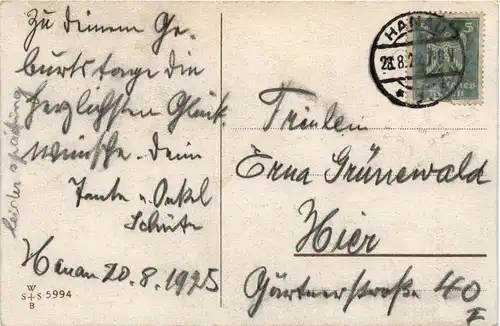 Zu Deinem Ge-
burtstage die
herzlichsten Glück
wünsche. Deine
Tante u. Onkel
Schütz
Hanau 20.8.1925
leider spätling
W
S+S 5994
B
HANAU
8.2
5
Fräulein
Erna Grünewald
Hier
Gärtnerstraße 40
I